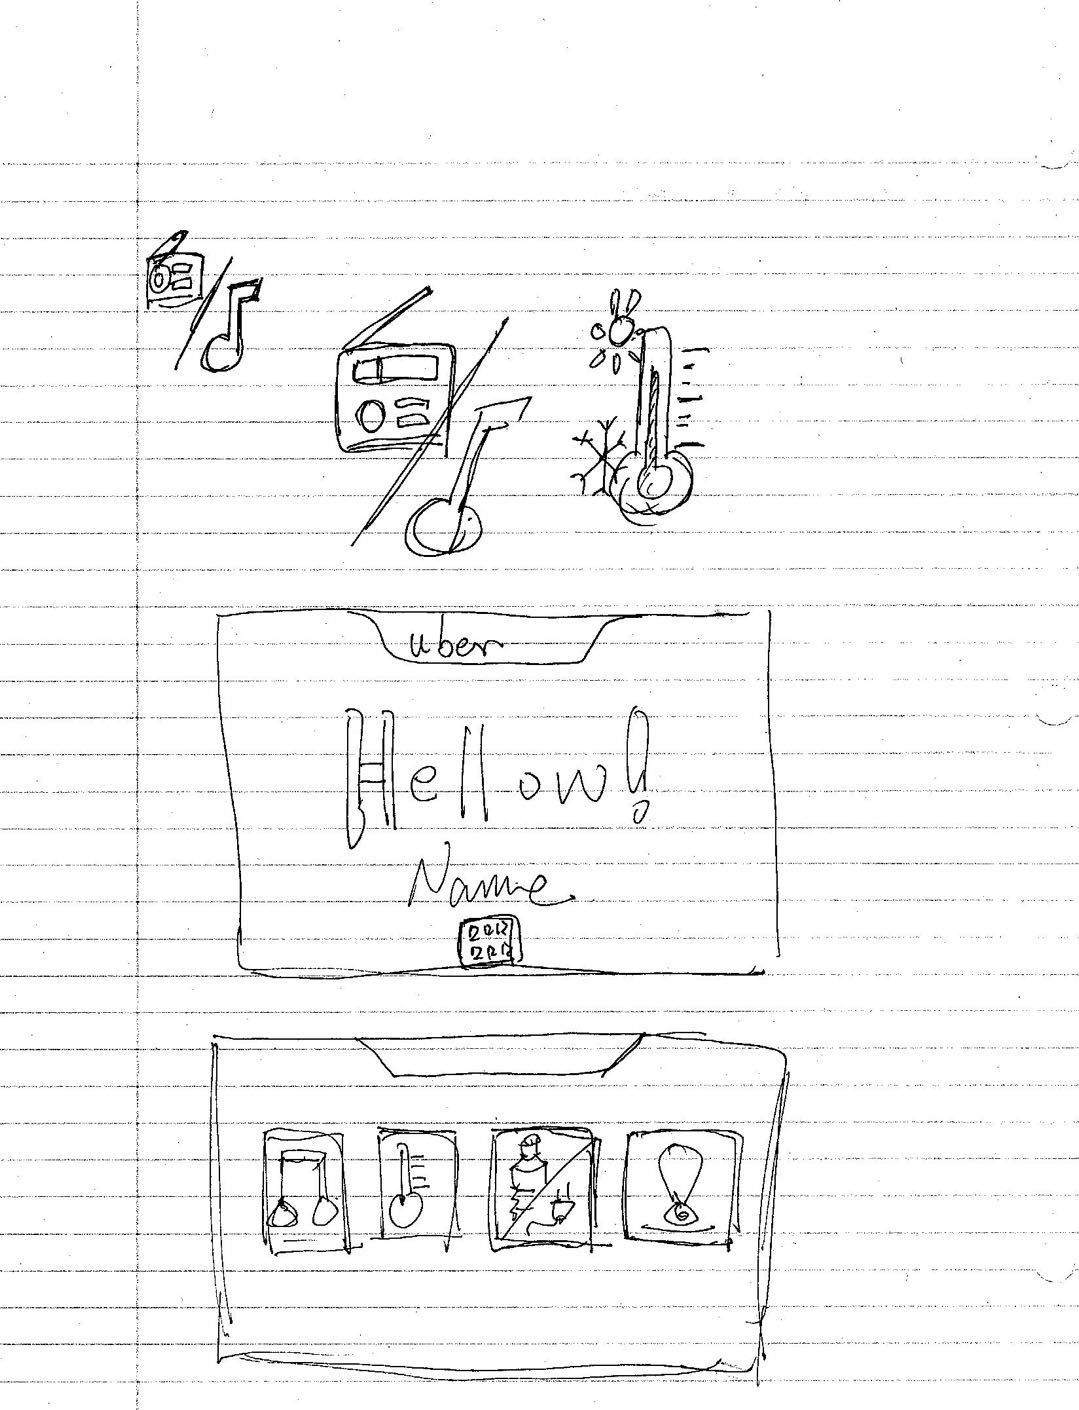 uber
Hellow!
Name